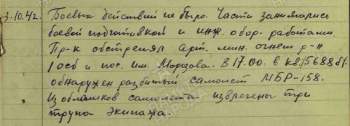 3.10.42. Боевых действий не было. Части занимались
боевой подготовкой и инж. обор. работами.
Пр-к обстрелял арт. мин. огнем р-н
1 осб и пос. им. Морозова. В 17.00 в кв/5688 б/
обнаружен разбитый самолет МБР-158.
Из обломков самолета извлечены три
трупа экипажа.